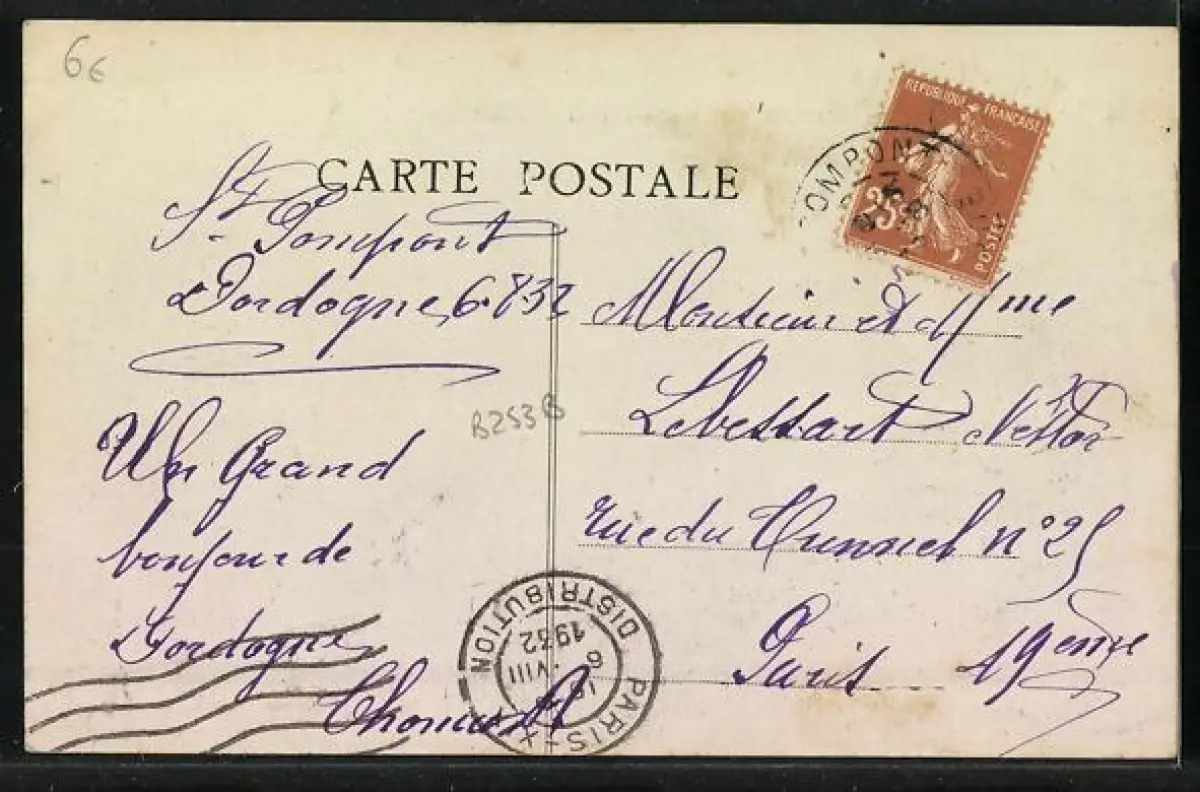 6€
CARTE POSTALE
REPUBLIQUE FRANÇAISE
25c
POSTES
OMPONT
St Pompont
Dordogne 6.8.32
Un Grand
bonjour de
Dordogne
Thomas
B253B
Monsieur et Mme
Lebettart Nestor
rue du Tunnel n° 25
Paris 19eme
PARIS-X DISTRIBUTION
6 VIII
1932